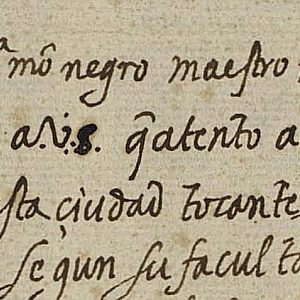 mõ negro maestro
a.V.S. q̃ atento a
sta çiudad tocante
según su facult